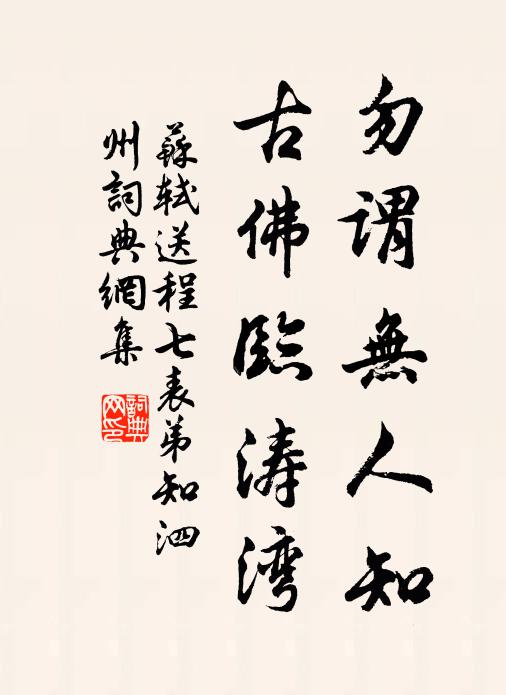 勿謂無人知
古佛臨涛湾
蘇軾送程七表弟知泗
州詞典網集
詞典
网印